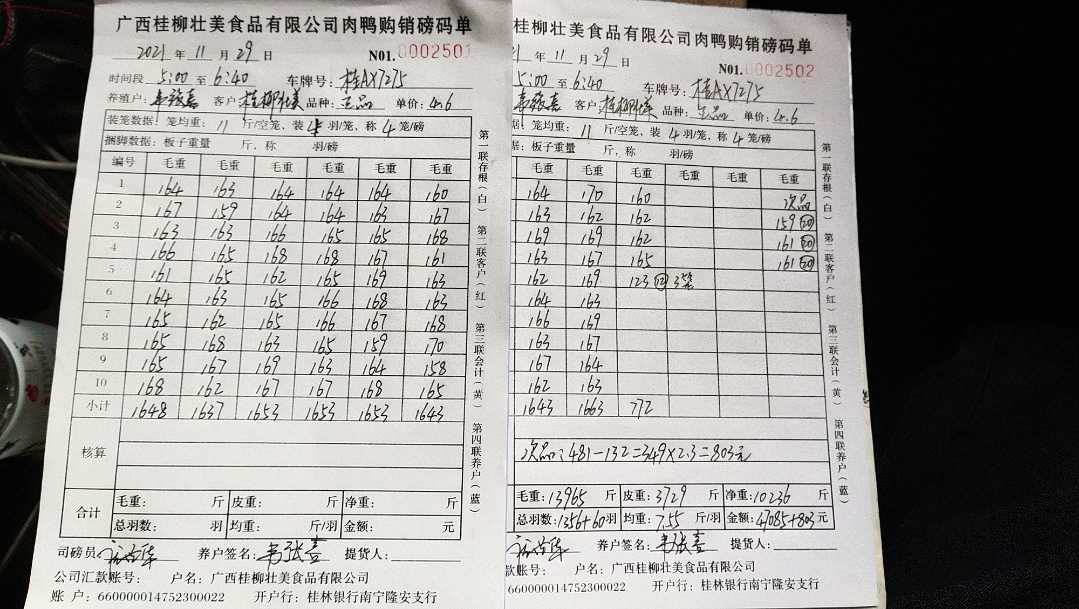 广西桂柳壮美食品有限公司肉鸭购销磅码单
2021 年 11 月 29 日 N01.0002501
时间段 5:00 至 6:40 车牌号: 桂AX7275
养殖户: 客户: 桂柳壮美 品种: 正品 单价: 4.6
装笼数据: 笼均重: 11 斤/空笼、装 4 羽/笼,称 4 笼/磅
捆脚数据: 板子重量 斤,称 羽/磅
编号 毛重 毛重 毛重 毛重 毛重 毛重
1 164 163 164 164 164 160
2 167 159 164 164 163 167
3 163 163 166 165 165 168
4 166 165 168 168 167 161
5 161 165 162 165 169 163
6 164 163 165 166 168 163
7 165 162 165 166 167 168
8 165 168 163 165 159 170
9 165 167 169 163 164 158
10 168 162 167 167 168 165
小计 1648 1637 1653 1653 1653 1643
核算
合计 毛重: 斤 皮重: 斤 净重: 斤
总羽数: 羽 均重: 斤/羽 金额: 元
司磅员: 养户签名: 提货人:
公司汇款账号: 户名: 广西桂柳壮美食品有限公司
账 户: 660000014752300022 开户行: 桂林银行南宁隆安支行
第一联存根(白) 第二联客户(红) 第三联会计(黄) 第四联养户(蓝)
有限公司肉鸭购销磅码单
21 年 11 月 29 日 N01.0002502
5:00 至 6:40 车牌号: 桂AX7275
客户: 桂柳壮美 品种: 正品 单价: 4.6
据: 笼均重: 11 斤/空笼、装 4 羽/笼,称 4 笼/磅
据: 板子重量 斤,称 羽/磅
毛重 毛重 毛重 毛重 毛重 毛重
164 170 160 次品
163 162 162 159 20
169 169 162 161 20
163 167 165 161 20
162 169 123 3笼
164 163
166 169
163 167
167 164
162 163
1643 1663 772
次品: 481-132=349×2.3=803元
毛重: 13965 斤 皮重: 3729 斤 净重: 10236 斤
总羽数: 1356+60 羽 均重: 7.55 斤/羽 金额: 47085+803 元
养户签名: 提货人:
款账号: 户名: 广西桂柳壮美食品有限公司
660000014752300022 开户行: 桂林银行南宁隆安支行
第一联存根(白) 第二联客户(红) 第三联会计(黄) 第四联养户(蓝)